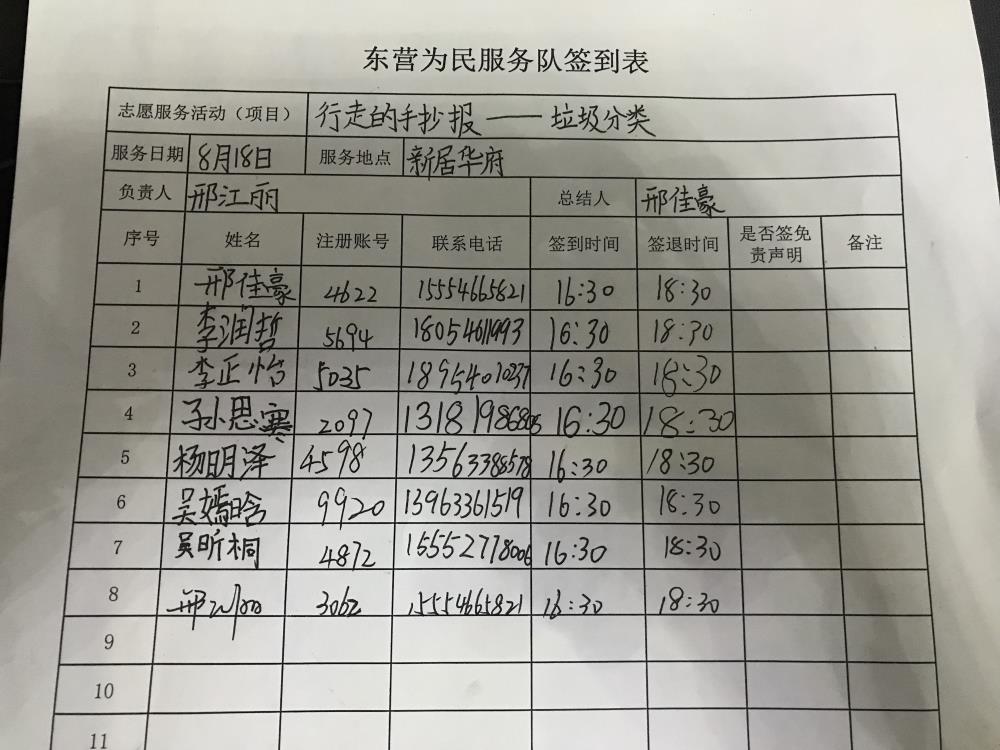 东营为民服务队签到表
志愿服务活动（项目） 行走的手抄报——垃圾分类
服务日期 8月18日 服务地点 新居华府
负责人 邢江丽 总结人 邢佳豪
序号 姓名 注册账号 联系电话 签到时间 签退时间 是否签免责声明 备注
1 邢佳豪 4622 15554665821 16:30 18:30
2 李润哲 5694 18054611993 16:30 18:30
3 李正怡 5035 18954010237 16:30 18:30
4 孙思寒 2097 13181986805 16:30 18:30
5 杨明泽 4598 13563388578 16:30 18:30
6 吴嫣晗 9920 13963361519 16:30 18:30
7 吴昕桐 4872 15552778006 16:30 18:30
8 邢江丽 3062 15554665821 16:30 18:30
9
10
11